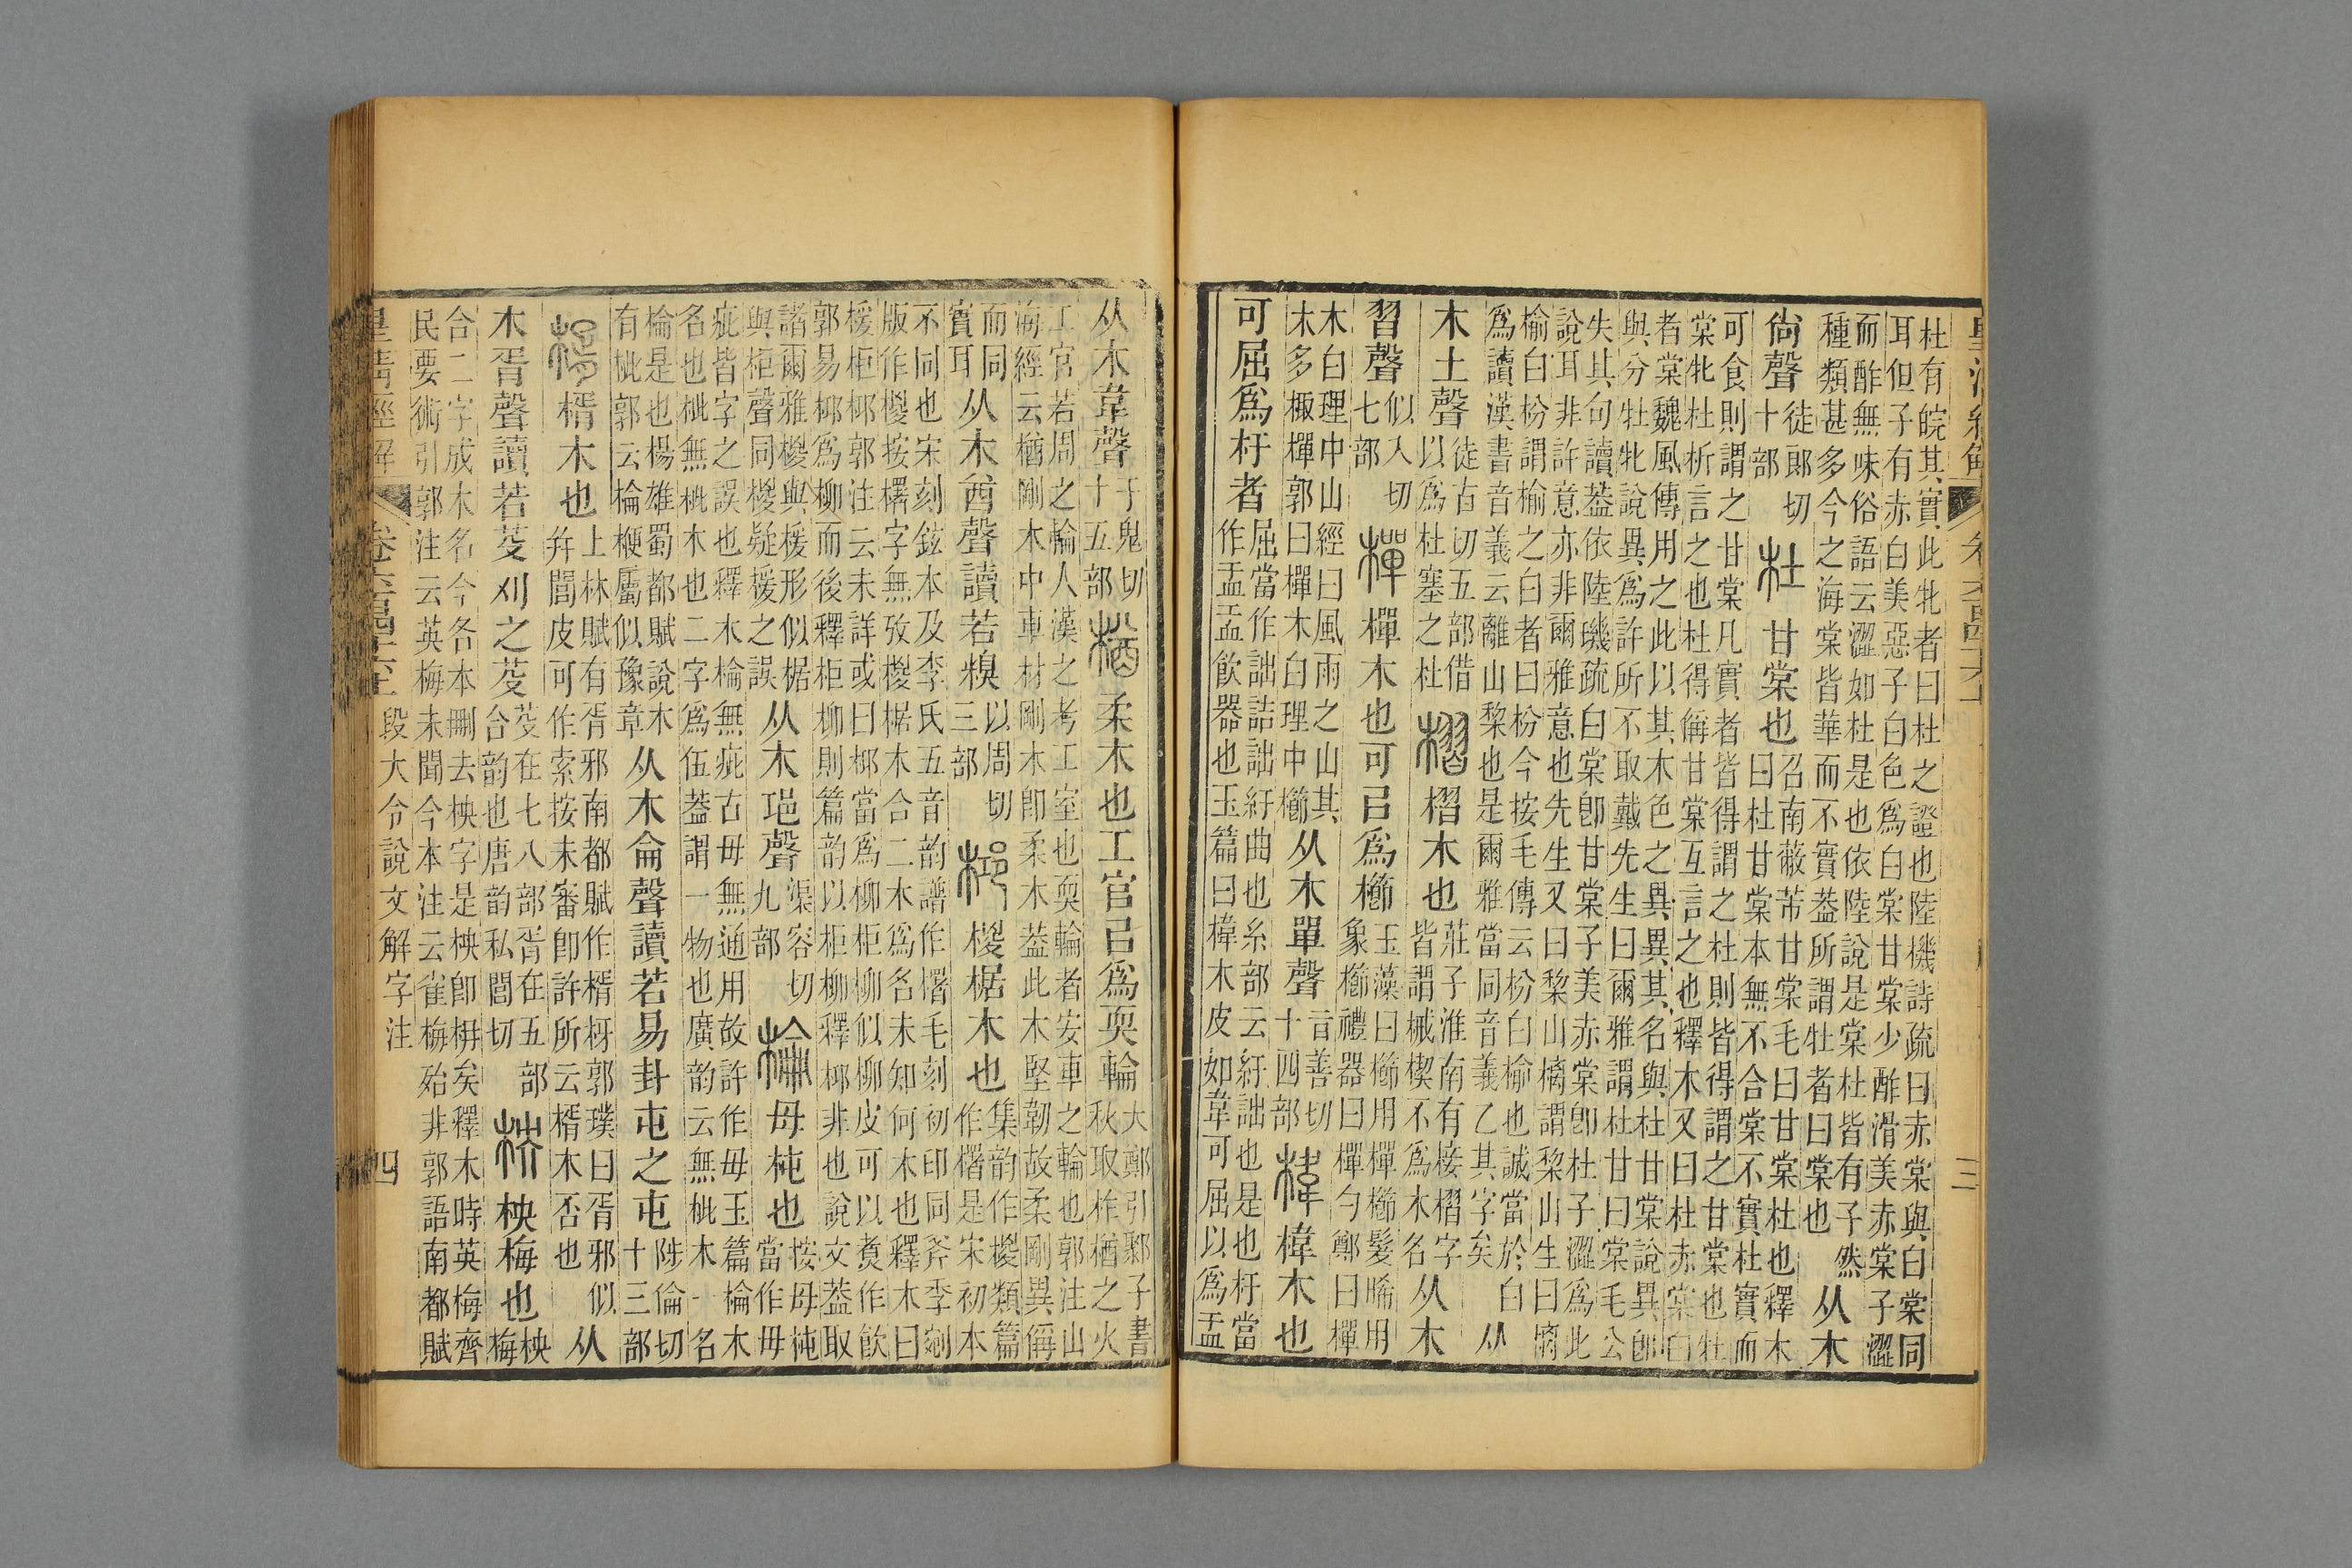 杜有晥其實此牝者曰杜之證也陸機詩疏曰赤棠與白棠同
耳但子有赤白美惡子白色爲白棠甘棠少酢滑美赤棠子澀
而酢無味俗語云澀如杜是也依陸說是棠杜皆有子然
種類甚多今之海棠皆華而不實葢所謂牡者曰棠也 从木
尙聲 徒郎切十部 杜 甘棠也 召南蔽芾甘棠毛曰甘棠杜也釋木曰杜甘棠本無不合棠不實杜實而
可食則謂之甘棠凡實者皆得謂之杜則皆得謂之甘棠也牡
棠牝杜析言之也杜得偁甘棠互言之也釋木又曰杜赤棠白
者棠魏風傳用之此以其木色之異異其名與杜甘棠說異卽
與分牡牝說異爲許所不取戴先生曰爾雅謂杜甘曰棠毛公
失其句讀葢依陸璣疏白棠卽甘棠子美赤棠卽杜子澀爲此
說耳非許意亦非爾雅意也先生又曰棃山樆謂棃山生曰樆
榆白枌謂榆之白者曰枌今按毛傳云枌白榆也誠當於白
爲讀漢書音義云離山棃也是爾雅當同音義乙其字矣 从
木土聲 徒古切五部借以爲杜塞之杜 槢 槢木也 莊子淮南有接槢字皆謂械楔不爲木名 从木
習聲 似入切七部 樿 樿木也可㠯爲櫛 玉藻曰櫛用樿櫛髮晞用象櫛禮器曰樿勺鄭曰樿
木白理中山經曰風雨之山其木多棷樿郭曰樿木白理中櫛 从木單聲 旨善切十四部 椲 椲木也
可屈爲杅者 屈當作詘詰詘紆曲也糸部云紆詘也是也杅當作盂盂飮器也玉篇曰椲木皮如韋可屈以爲盂
皇淸經解 三
从木韋聲 于鬼切十五部 楢 柔木也工官㠯爲耎輪 大鄭引鄹子書秋取柞楢之火
工官若周之輪人漢之考工室也耎輪者安車之輪也郭注山
海經云楢剛木中車材剛木卽柔木葢此木堅韌故柔剛異偁
而同實耳 从木酋聲讀若糗 以周切三部 桏 椶椐木也 集韵作椶類篇作榰是宋初本
不同也宋刻鉉本及李氏五音韵譜作榰毛刻初印同斧季剜
版作椶按榰字無攷椶椐木合二木爲名未知何木也釋木曰
楥柜桏郭注云未詳或曰桏當爲柳柜柳似柳皮可以煑作飮
郭易桏爲柳而後釋柜柳則篇韵以柜柳釋桏非也說文葢取
諸爾雅椶與楥形似椐與柜聲同椶疑楥之誤 从木邛聲 渠容切九部 棆 母杶也 按母杶當作毋
疵皆字之誤也釋木棆無疵古毋無通用故許作毋玉篇棆木
名也枇無枇木也二字爲伍葢謂一物也廣韵云無枇木一名
棆是也楊雄蜀都賦說木有枇郭云棆梗屬似豫章 从木侖聲讀若易卦屯之屯 陟倫切十三部
楈 楈木也 上林賦有胥邪南都賦作楈枒郭璞曰胥邪似幷閭皮可作索按未審卽許所云楈木否也 从
木胥聲讀若芟刈之芟 芟在七八部胥在五部合韵也唐韵私閭切 柍 柍梅也 柍梅
合二字成木名今各本刪去柍字是柍卽柟矣釋木時英梅齊
民要術引郭注云英梅未聞今本注云雀梅殆非郭語南都賦
皇淸經解 卷六百四十六上 段大令說文解字注 四